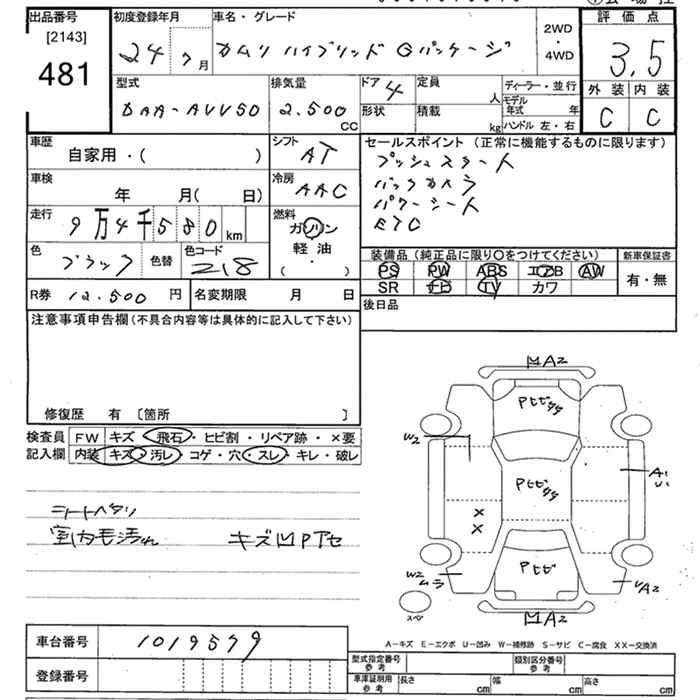 出品番号
[2143]
481
初度登録年月
24年7月
車名・グレード
カムリ ハイブリッド Gパッケージ
2WD
・
4WD
評価点
3.5
外装 内装
C C
型式
DAA-AVV50
排気量
2.500
CC
ドア 4
形状
定員
人
積載
kg
ディーラー・並行
モデル年式 年
ハンドル 左・右
車歴
自家用・( )
シフト
AT
車検
年 月( 日)
冷房
AAC
走行
9万4千580km
燃料
ガソリン
軽油
( )
色
ブラック
色替
色コード
218
R券 12.500 円
名変期限 月 日
セールスポイント (正常に機能するものに限ります)
プッシュスタート
バックカメラ
パワーシート
ETC
装備品 (純正品に限り○をつけてください)
新車保証書
PS PW ABS エアB AW
SR ナビ TV カワ
有・無
後日品
注意事項申告欄 (不具合内容等は具体的に記入して下さい)
修復歴 有 [箇所 ]
検査員
記入欄
FW キズ・飛石・ヒビ割・リペア跡・×要
内装 キズ・汚レ・コゲ・穴・スレ・キレ・破レ
シートヘタリ
室内毛汚れ キズ凹PTセ
MA2
Pヒビ
W2
Pヒビ
A1
X
X
Pヒビ
W2
ムラ
UA2
スペア
MA2
A−キズ E−エクボ U−凹み W−補修跡 S−サビ C−腐食 XX−交換済
車台番号 1019579
登録番号
型式指定番号
参考
類別区分番号
参考
車庫証明用
参考
長さ cm
幅 cm
高さ cm